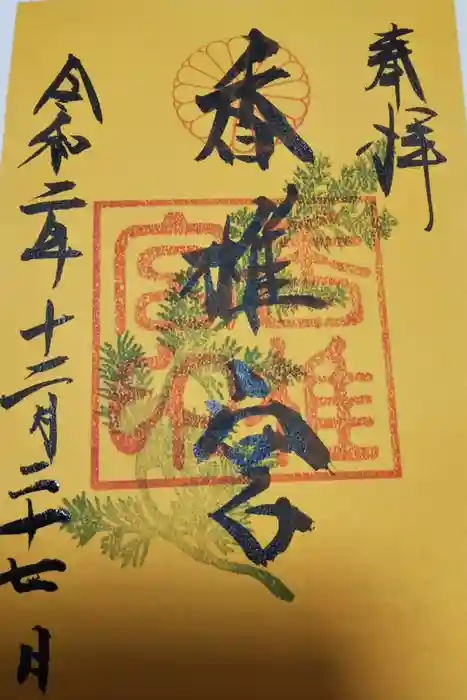 奉拝
香椎宮
令和二年十二月二十七日